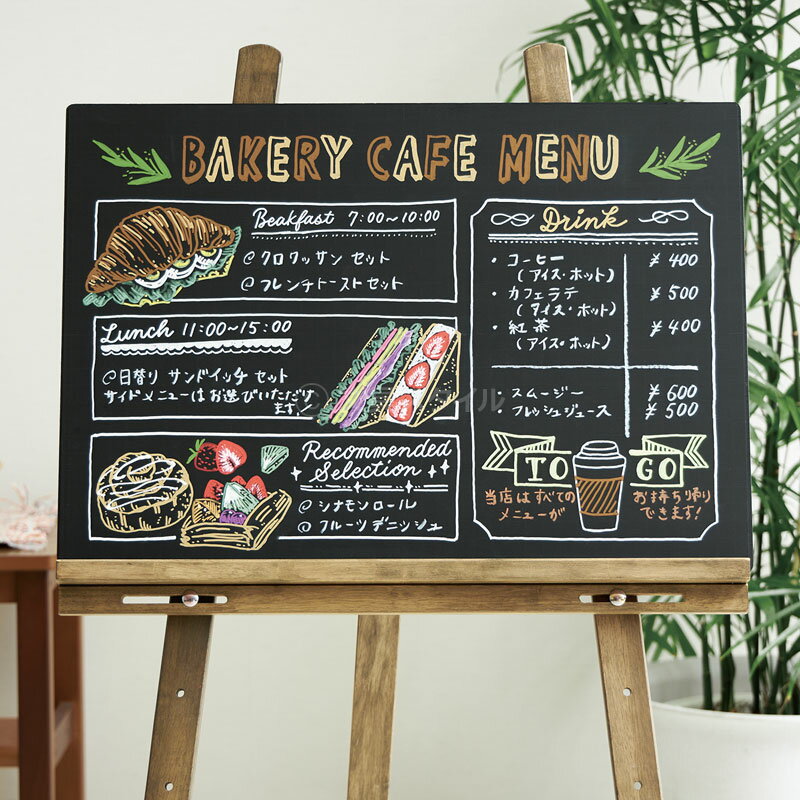 BAKERY CAFE MENU
Beakfast 7:00~10:00
@クロワッサン セット
@フレンチトーストセット
Lunch 11:00~15:00
@日替り サンドイッチ セット
サイドメニューはお選びいただけ
ます。
Recommended
Selection
@シナモンロール
@フルーツデニッシュ
Drink
・コーヒー ¥400
(アイス・ホット)
・カフェラテ ¥500
(アイス・ホット)
・紅茶 ¥400
(アイス・ホット)
スムージー ¥600
フレッシュジュース ¥500
TO GO
当店はすべての
メニューが
お持ち帰り
できます!